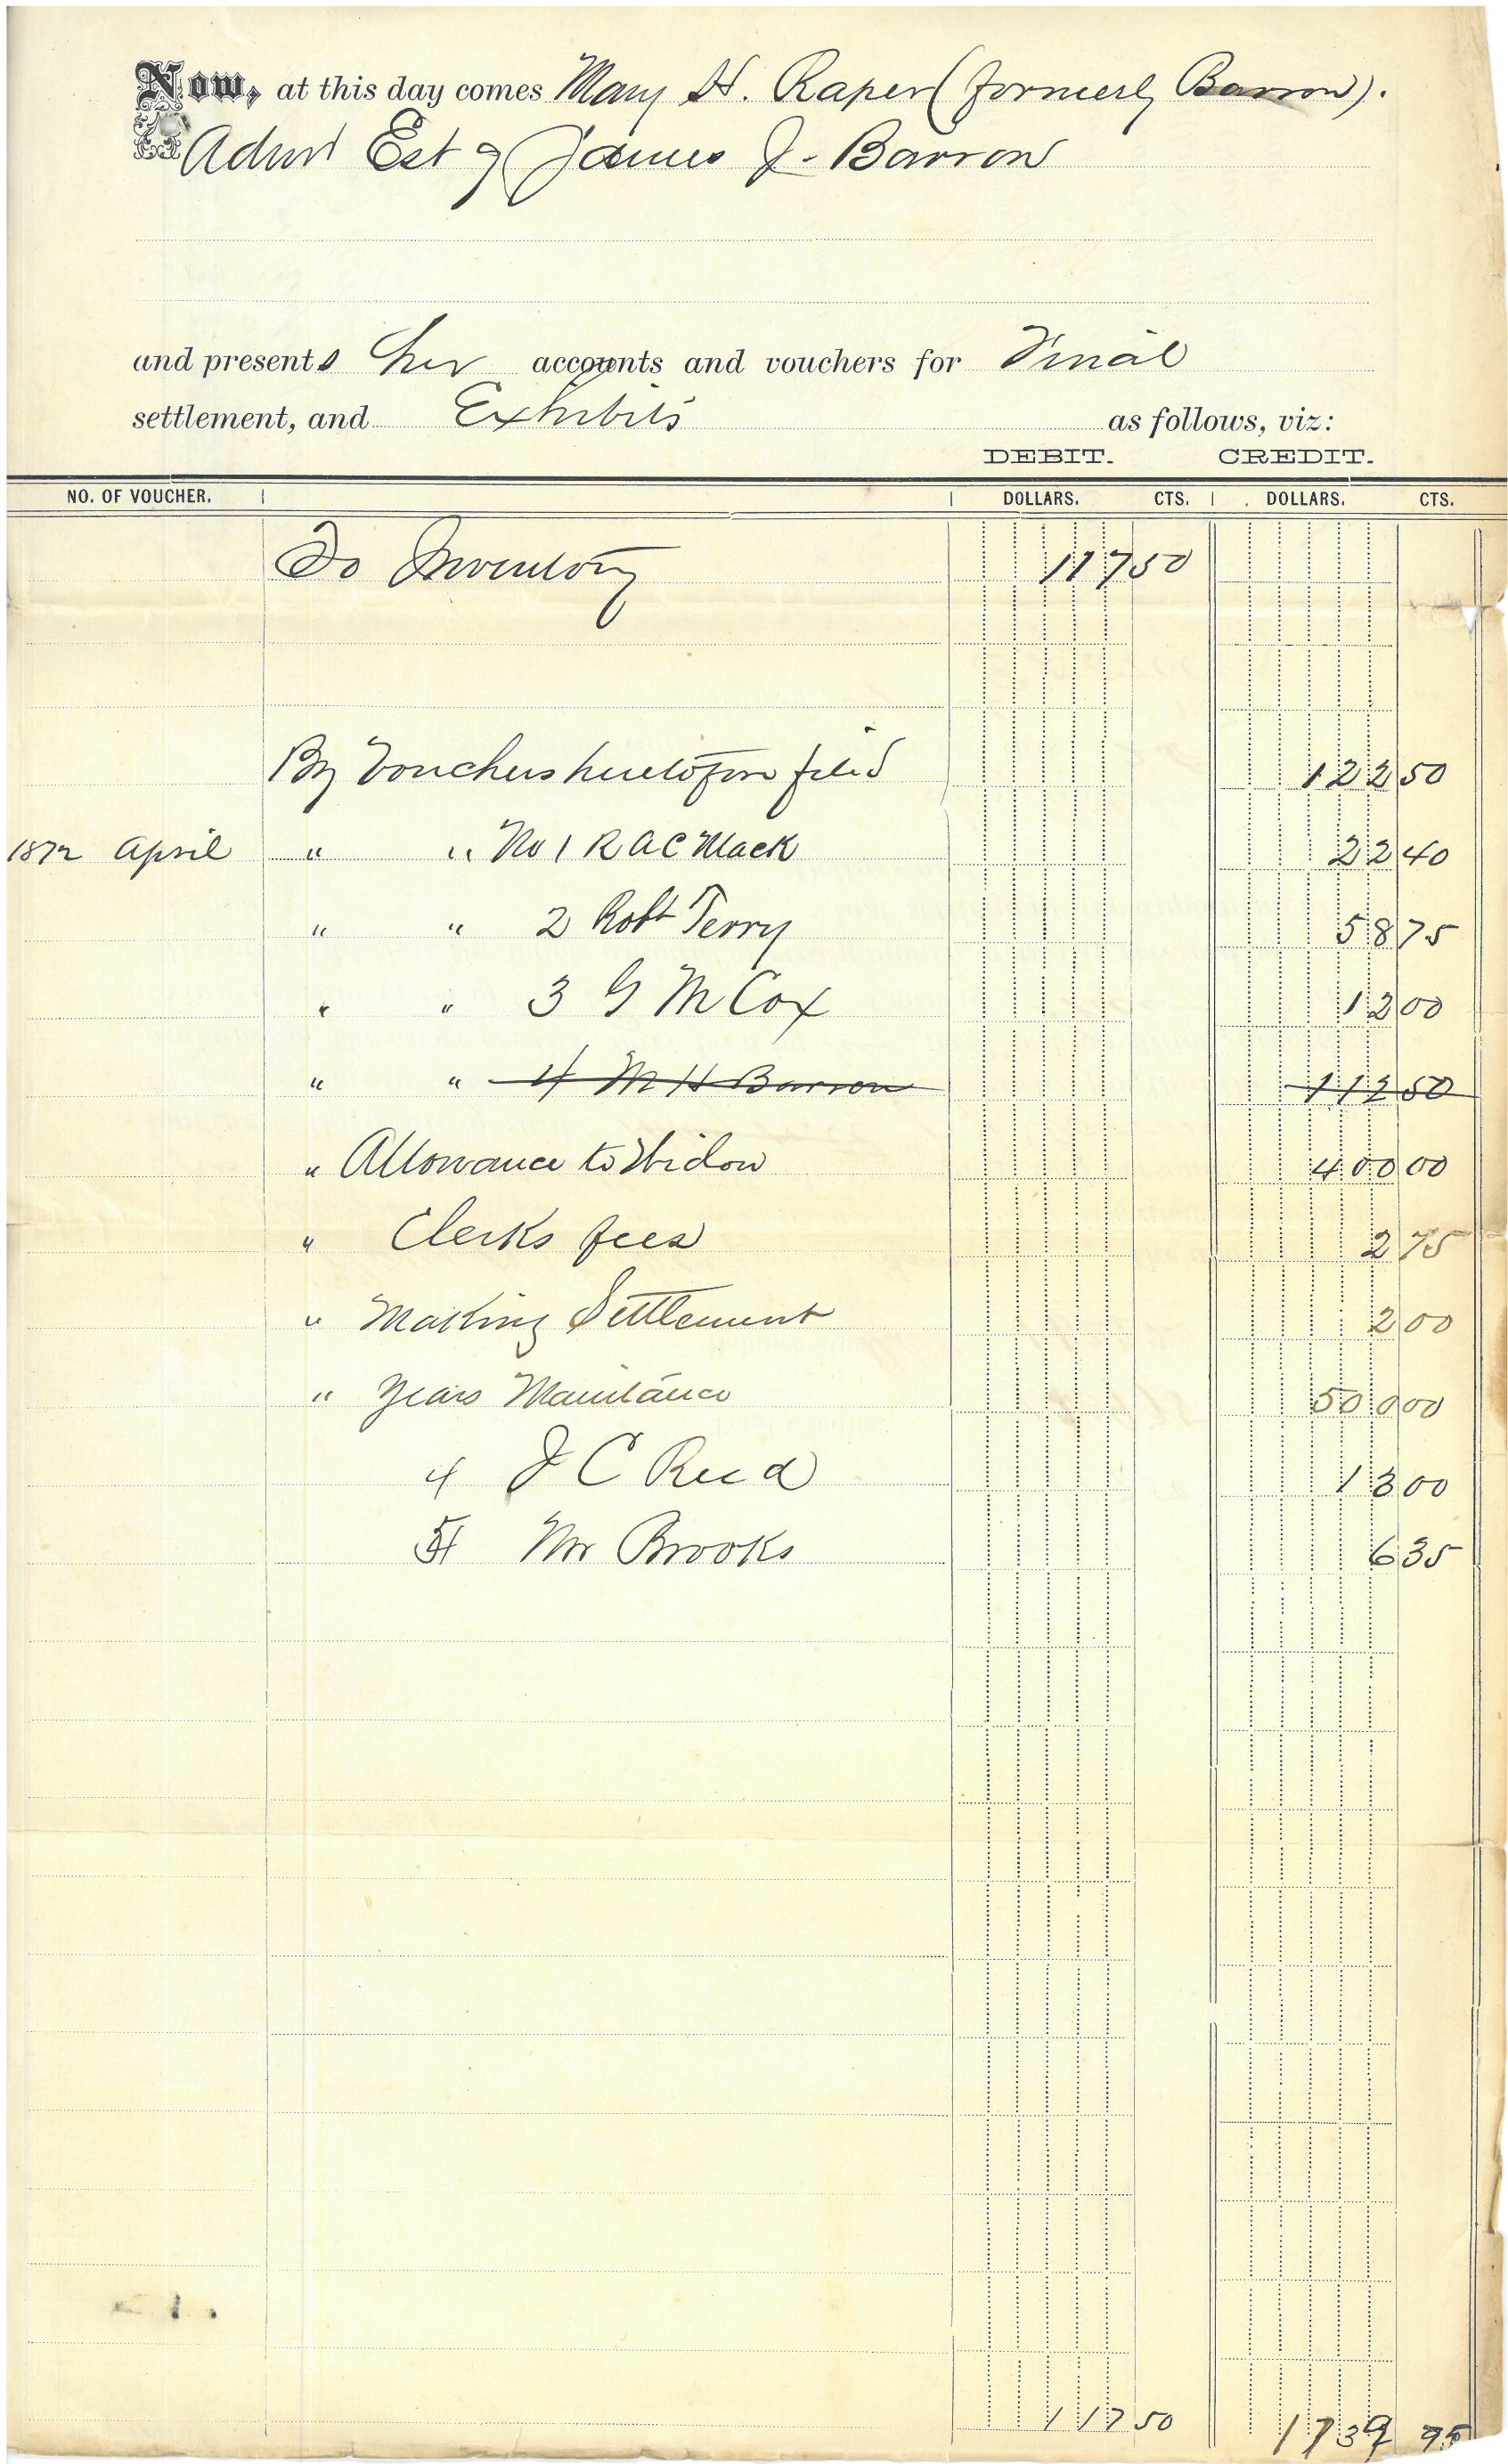 Now, at this day comes Mary H. Raper (formerly Barron).
Admr Est of James J. Barron
and presents her accounts and vouchers for Final
settlement, and Exhibits as follows, viz:
DEBIT. CREDIT.
NO. OF VOUCHER. DOLLARS. CTS. DOLLARS. CTS.
To Inventory 117 50
By Vouchers heretofore filed 122 50
1872 April " " No 1 R A C Mack 22 40
" " 2 Robt Terry 58 75
" " 3 G M Cox 12 00
" " 4 M H Barron 112 50
" Allowance to Widow 400 00
" Clerks fees 2 75
" Making Settlement 2 00
" Years Maintance 500 00
4 J C Reed 13 00
5 Mr Brooks 6 35
117 50 1139